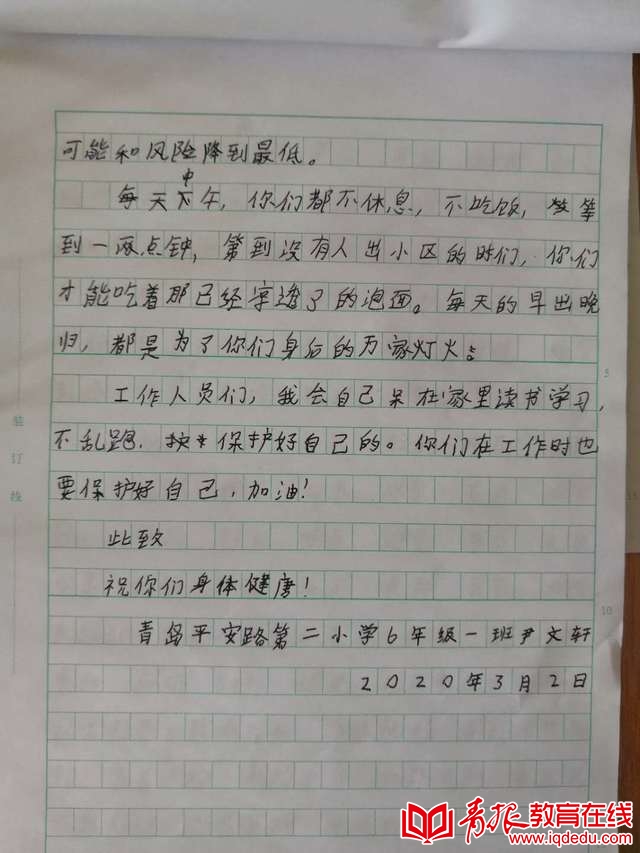 可能和风险降到最低。
每天中午，你们都不休息，不吃饭，等
到一两点钟，等到没有人出小区的时们，你们
才能吃着那已经字透了的泡面。每天的早出晚
归，都是为了你们身后的万家灯火。
工作人员们，我会自己呆在家里读书学习，
不乱跑．保护好自己的。你们在工作时也
要保护好自己，加油！
此致
祝你们身体健康！
青岛平安路第二小学6年级一班尹文轩
2020年3月2日
装
订
线
5
10
青报教育在线
www.iqdedu.com